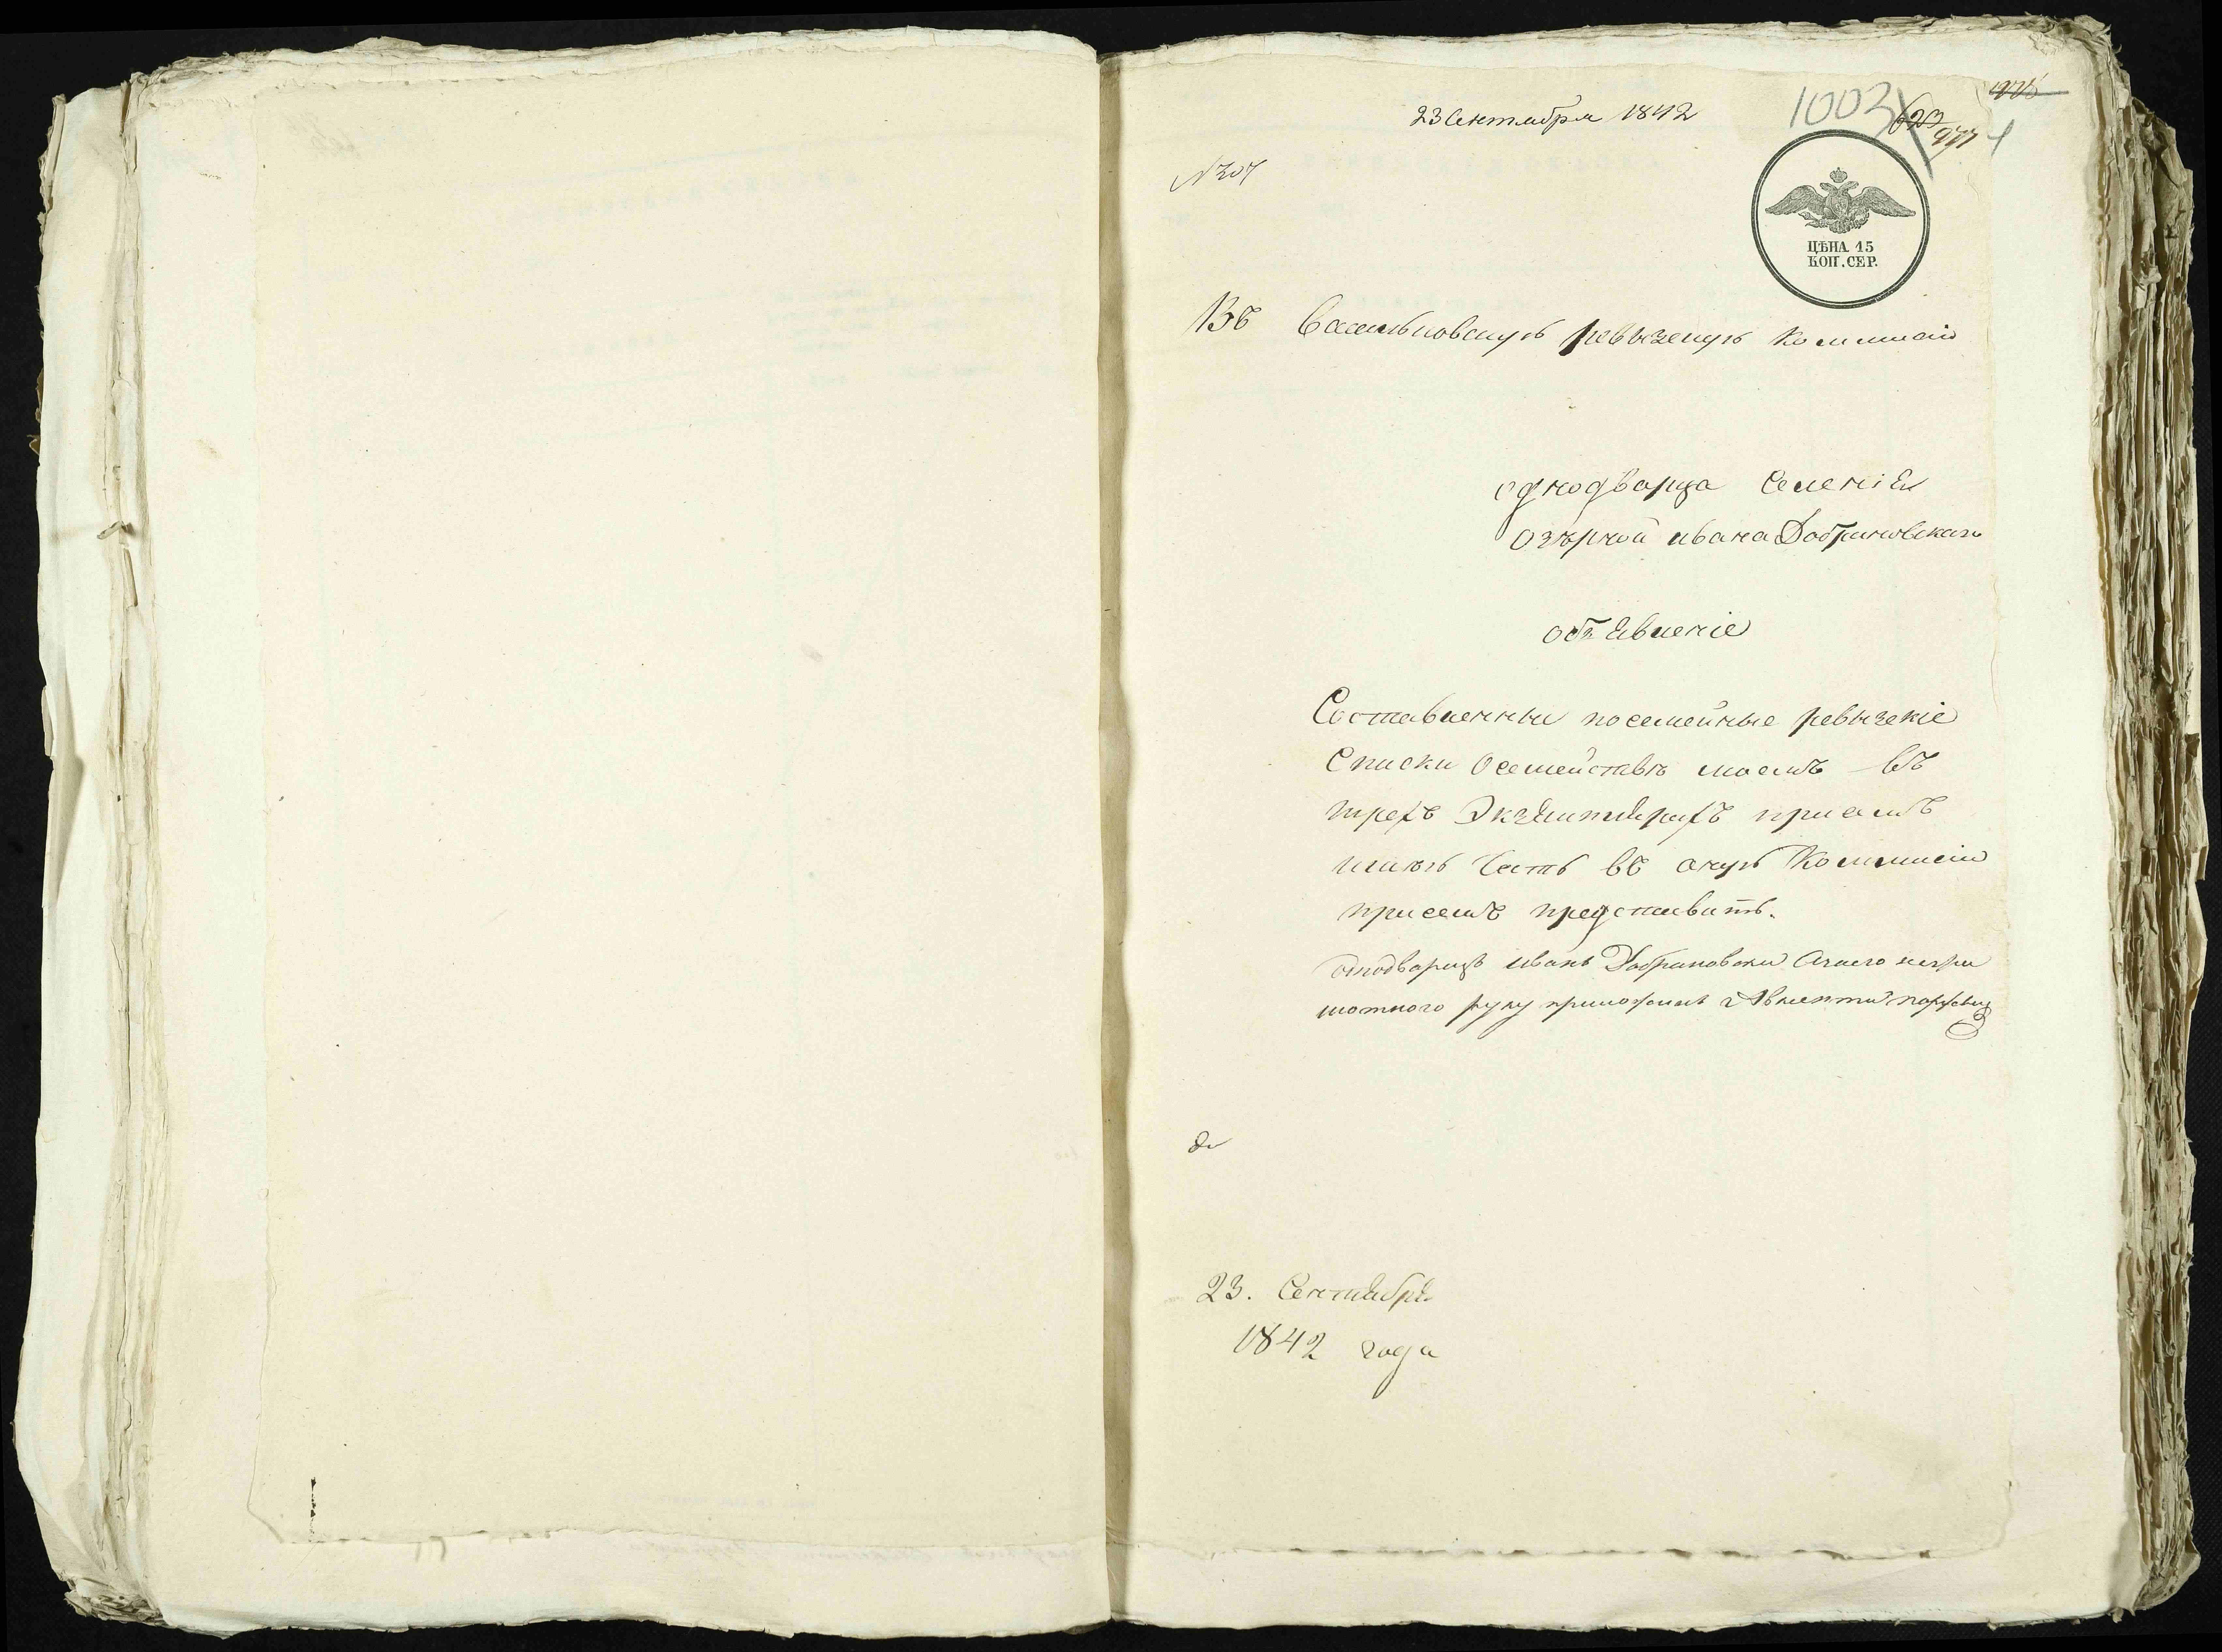 23 Сентября 1842
1003
№ 307
ЦѢНА 15
КОП. СЕР.
Въ Васильковскую ревызскую Коммисію
однодварца Селенія
Озѣрной ивана Добрыновскаго
объявленіе
Составленные посемейные ревызскіе
Списки Осемействѣ моемъ въ
трехъ Экземплярахъ приемъ
имѣю Честь въ оную Коммисію
присемъ представить.
Однодворецъ Иванъ Добрыновски Азанего негра
мотного руку приложилъ
23. Сентября
1842 года